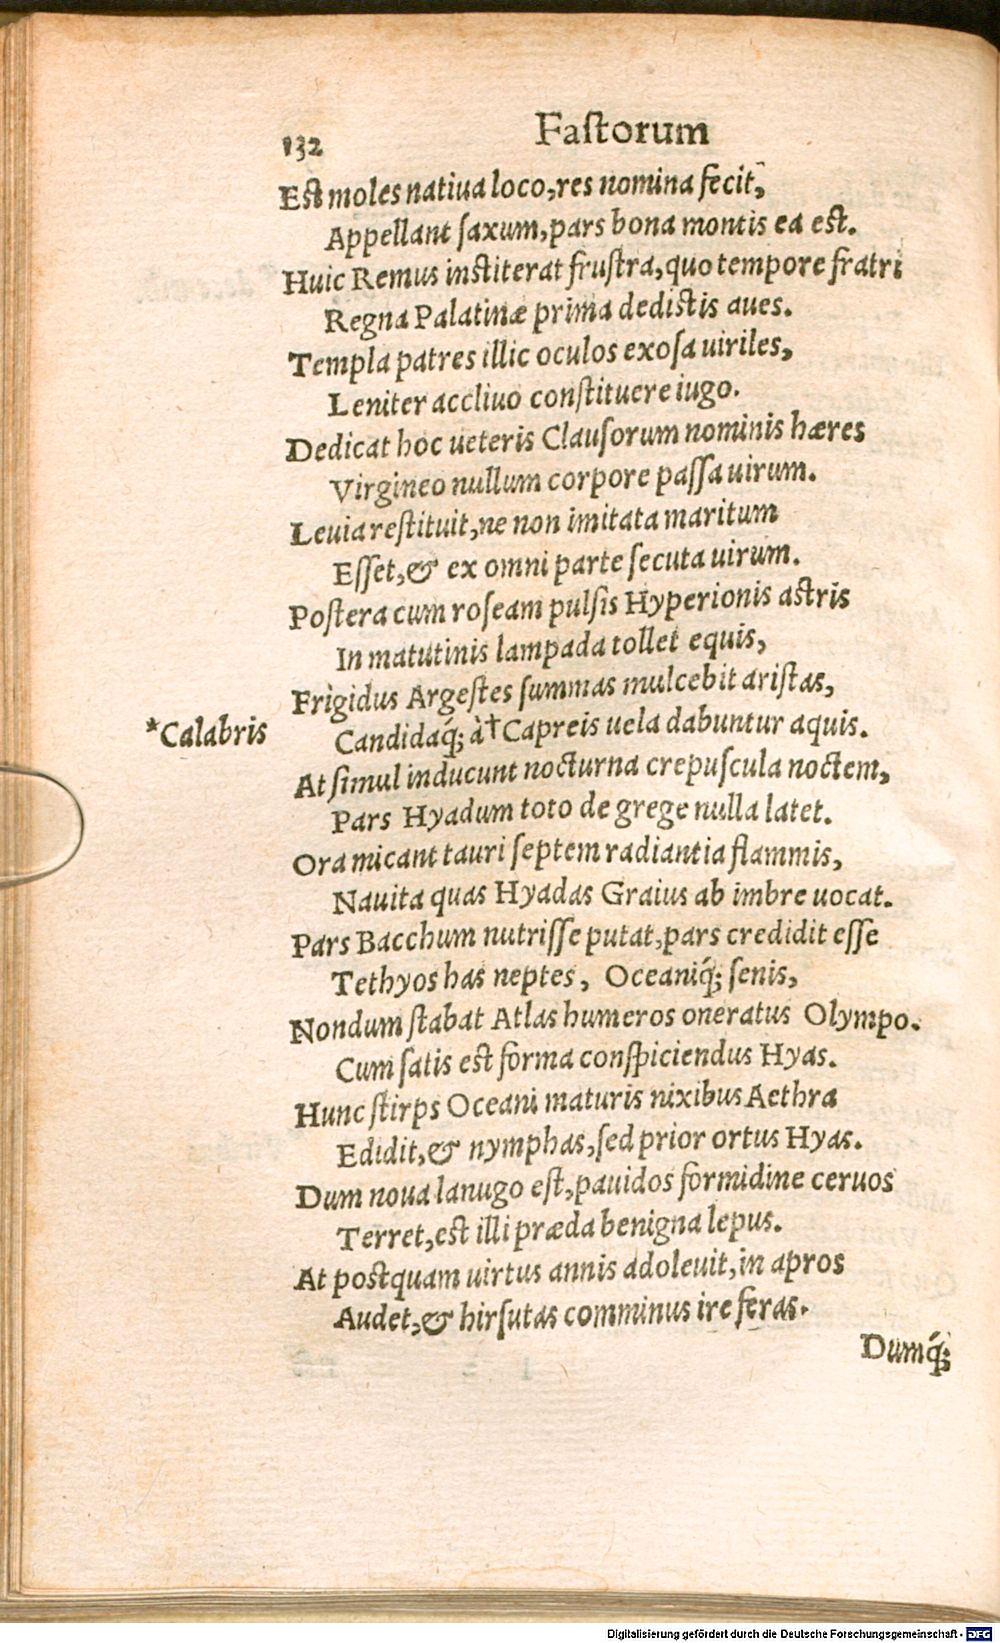 132 Faſtorum
Eſt moles natiua loco, res nomina fecit,
Appellant ſaxum, pars bona montis ea eſt.
Huic Remus inſtiterat fruſtra, quo tempore fratri
Regna Palatinæ prima dediſtis aues.
Templa patres illic oculos exoſa uiriles,
Leniter accliuo conſtituere iugo.
Dedicat hoc ueteris Clauſorum nominis hæres
Virgineo nullum corpore paſſa uirum.
Leuia reſtituit, ne non imitata maritum
Eſſet, & ex omni parte ſecuta uirum.
Poſtera cum roſeam pulſis Hyperionis aſtris
In matutinis lampada tollet equis,
Frigidus Argeſtes ſummas mulcebit ariſtas,
*Calabris Candidaq́; à † Capreis uela dabuntur aquis.
At ſimul inducunt nocturna crepuſcula noctem,
Pars Hyadum toto de grege nulla latet.
Ora micant tauri ſeptem radiantia flammis,
Nauita quas Hyadas Graius ab imbre uocat.
Pars Bacchum nutriſſe putat, pars credidit eſſe
Tethyos has neptes, Oceaniq́; ſenis,
Nondum ſtabat Atlas humeros oneratus Olympo.
Cum ſatis eſt forma conſpiciendus Hyas.
Hunc ſtirps Oceani maturis nixibus Aethra
Edidit, & nymphas, ſed prior ortus Hyas.
Dum noua lanugo eſt, pauidos formidine ceruos
Terret, eſt illi præda benigna lepus.
At poſtquam uirtus annis adoleuit, in apros
Audet, & hirſutas comminus ire feras.
Dumq́;
Digitalisierung gefördert durch die Deutsche Forschungsgemeinschaft - DFG